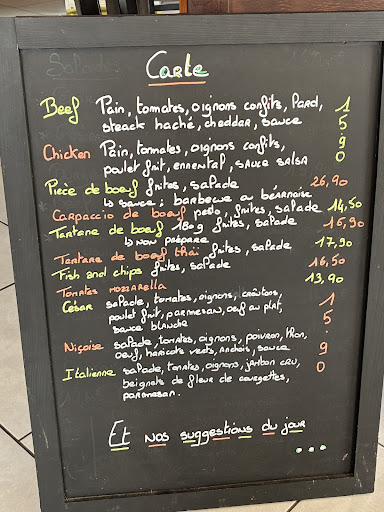 Carte
Beef Pain, tomates, oignons confits, Persil,
steack haché, cheddar, sauce
Chicken Pain, tomates, oignons confits,
poulet frit, emmental, sauce salsa
15,90
Pièce de boeuf frites, salade 26,90
↳ sauce : barbecue ou béarnaise
Carpaccio de boeuf pesto, frites, salade 14,50
Tartare de boeuf 180g frites, salade 16,90
↳ non préparé
Tartare de boeuf thaï frites, salade 17,90
Fish and chips frites, salade 16,50
Tomates mozzarella 13,90
César salade, tomates, oignons, croûtons,
poulet frit, parmesan, oeuf au plat,
sauce blanche
Niçoise salade, tomates, oignons, poivron, thon,
oeuf, haricots verts, anchois, sauce
Italienne salade, tomates, oignons, jambon cru,
beignets de fleur de courgettes,
parmesan.
15,90
Et nos suggestions du jour
...